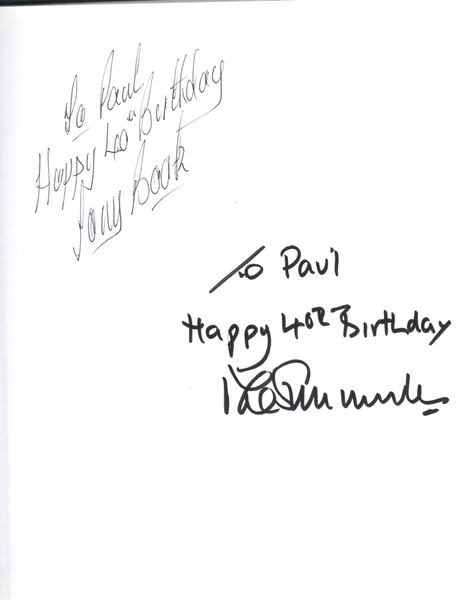 To Paul
Happy 40th Birthday
Tony Book
To Paul
Happy 40th Birthday